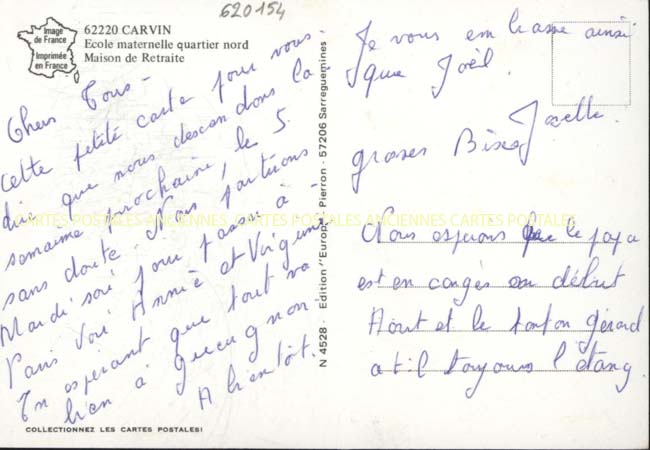 620154
Image
de France
Imprimée
en France
62220 CARVIN
Ecole maternelle quartier nord
Maison de Retraite
Chers Tous -
cette petite carte pour vous
dire que nous descendons la
semaine prochaine, le 5
sans doute. Nous partirons
Mardi soir pour passé à
Paris voir Annie et Virginie
En espérant que tout va
bien à Gueugnon
A bientôt.
COLLECTIONNEZ LES CARTES POSTALES!
N 4528 - Edition "Europ" - Pierron - 57206 Sarreguemines
Je vous embrasse ainsi
que Joël.
Joelle.
grosses Bises
Nous esperons que le papa
est en congés au début
Aout et le tonton gérard
a til toujours l'étang
CARTES POSTALES ANCIENNES CARTES POSTALES ANCIENNES CARTES POSTALES